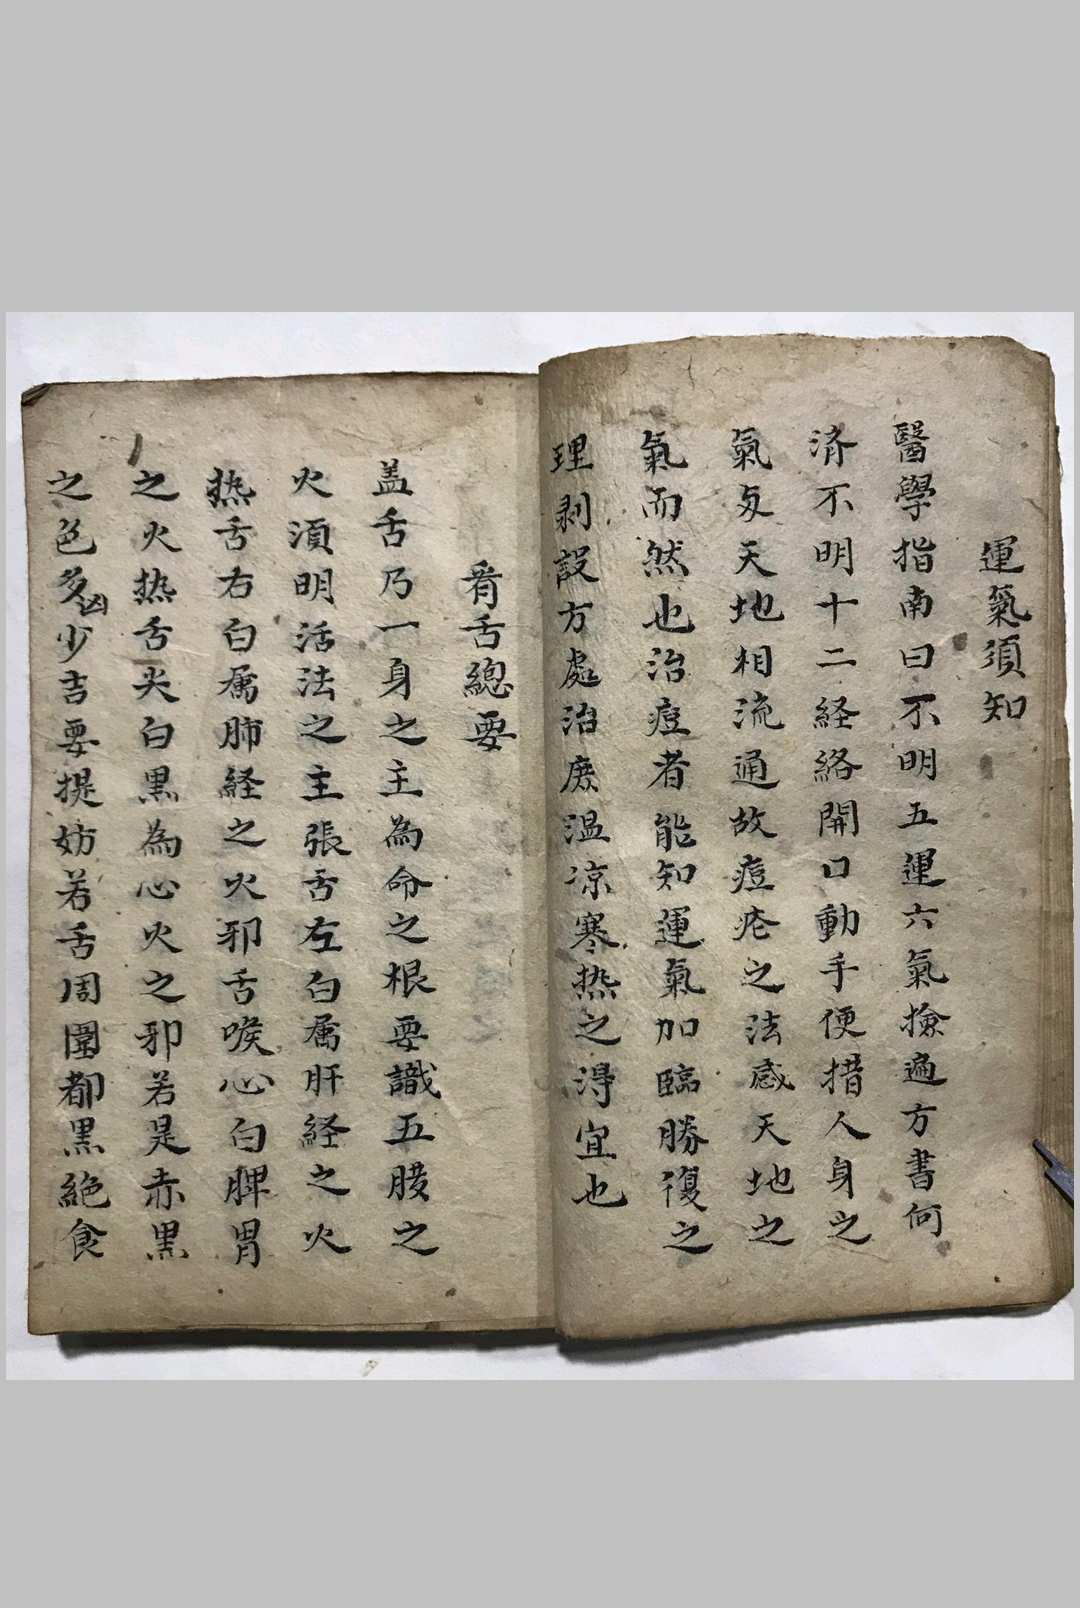 運氣須知
醫學指南曰不明五運六氣撿遍方書何
済不明十二経絡開口動手便措人身之
氣与天地相流通故痘疮之法感天地之
氣而然也治痘者能知運氣加臨勝復之
理剥設方處治庶温凉寒热之得宜也
看舌總要
盖舌乃一身之主為命之根要識五臓之
火須明活法之主張舌左白属肝経之火
热舌右白属肺経之火邪舌喉心白脾胃
之火热舌尖白黒為心火之邪若是赤黒
之色多凶少吉要提妨若舌周圍都黒絶食